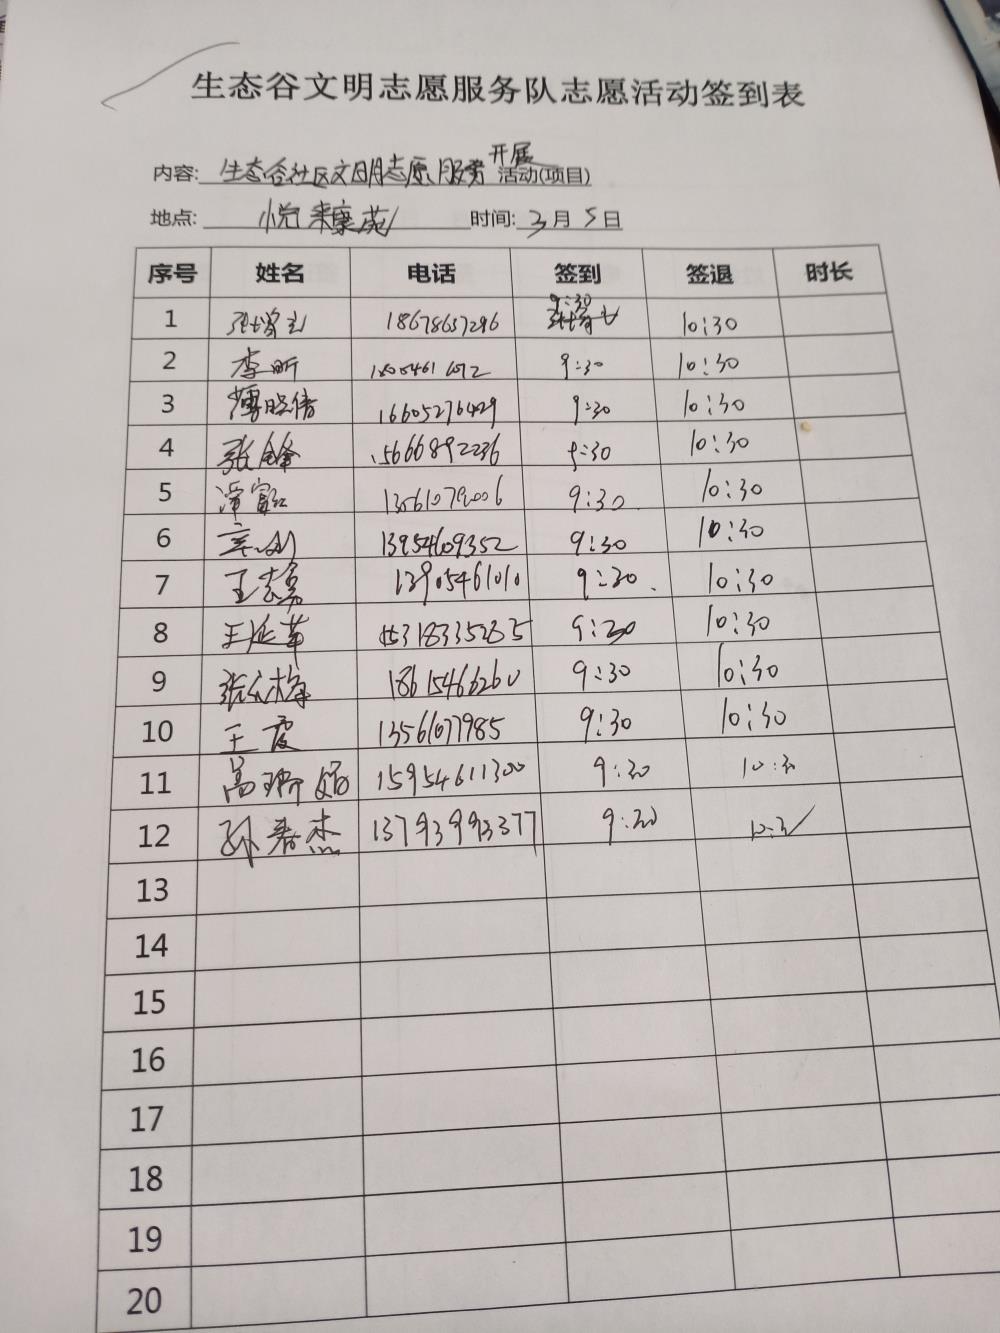 生态谷文明志愿服务队志愿活动签到表
内容: 生态谷社区文明志愿服务开展 活动(项目)
地点: 悦来康苑 时间: 3月5日
序号 姓名 电话 签到 签退 时长
1 18678657296 9:30 10:30
2 李昕 9:30 10:30
3 薄晓倩 16605276429 9:30 10:30
4 张锋 15666892236 9:30 10:30
5 9:30 10:30
6 13954609352 9:30 10:30
7 王志勇 13905461010 9:30 10:30
8 王延革 9:30 10:30
9 18615466260 9:30 10:30
10 王霞 13561077985 9:30 10:30
11 高珊娟 15954611300 9:30 10:30
12 孙春杰 13793993377 9:30 10:30
13
14
15
16
17
18
19
20